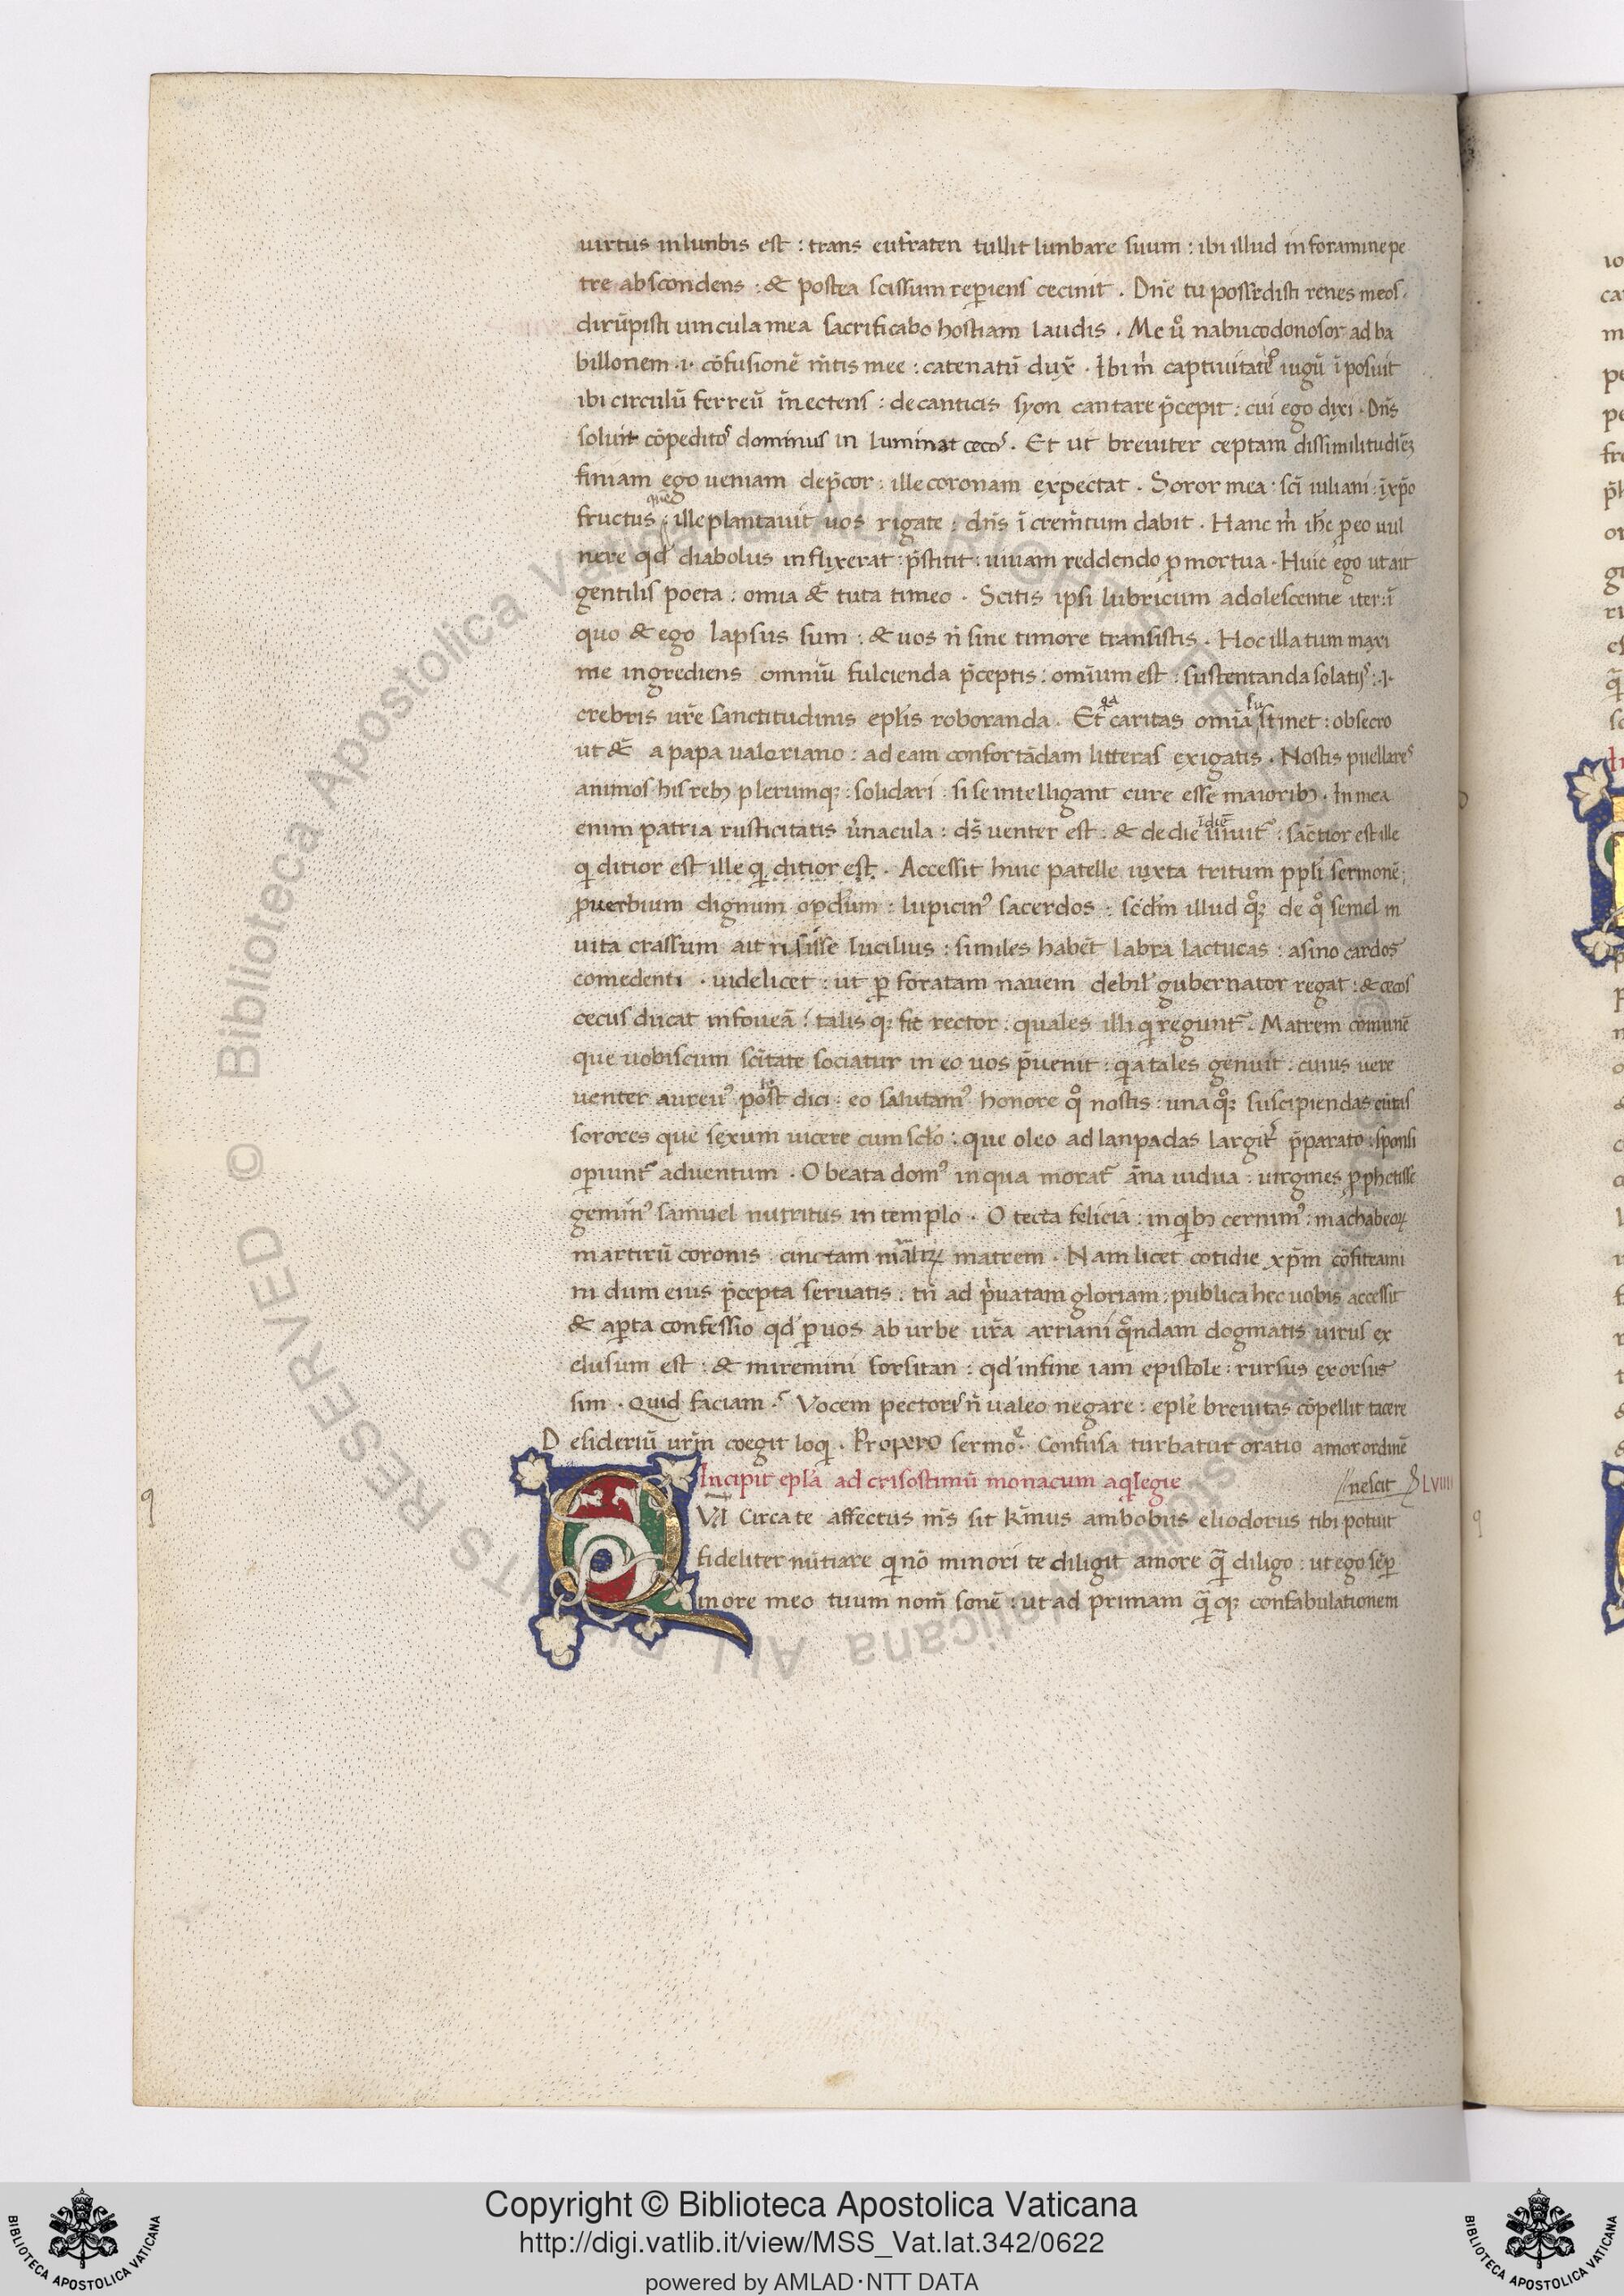 uirtus in lunbis est : trans eufraten tullit lunbare suum : ibi illud in foramine pe
tre abscondens : & postea scissum repiens cecinit . Dñe tu possedisti renes meos .
dirũpisti uincula mea sacrificabo hostiam laudis . Me ũ nabucodonosor ad ba
billonem .i. cõfusionẽ m̃tis mee : catenatũ dux̃ . Ibi m̃ captiuitatis iugũ ĩposuit
ibi circulũ ferreũ ĩnectens : de canticis syon cantare p̃cepit : cui ego dixi . Dñs
soluit cõpeditos dominus in luminat cecos . Et ut breuiter ceptam dissimilitudinẽ
finiam ego ueniam dep̃cor : ille coronam expectat . Soror mea : sci iuliani : ĩ xp̃o
fructus : ille plantauit uos rigate : dñs ĩcrem̃tum dabit . Hanc m̃ ihc̃ p eo uul
nere qd̃ diabolus inflixerat : p̃stitit : uiuam reddendo p mortua . Huic ego ut ait
gentilis poeta : omia & tuta timeo . Scitis ipsi lubricum adolescentie iter : ĩ
quo & ego lapsus sum : & uos ñ sine timore transistis . Hoc illa tum maxi
me ingrediens omniũ fulcienda p̃ceptis : omium est : sustentanda solatijs : .i.
crebris ur̃e sanctitudinis epl̃is roboranda . Et qa caritas omĩa sustinet : obsecro
ut & a papa ualeriano : ad eam confortãdam litteras exigatis . Nostis puellares
animos his rebȝ plerumqȝ : solidari : si se intelligant cure esse maioribȝ . In mea
enim patria rusticitatis ũnacula : ds̃ uenter est : & de die ĩ diẽ uiuit̃ : sãctior est ille
q ditior est ille q ditior est . Accessit huic patelle iuxta tritum ppli sermonẽ ;
puerbium dignum opculum : lupicinꝰ sacerdos : scd̃m illud qqȝ de qo semel in
uita crassum ait risisse lucilius : similes habẽt labra lactucas : asino cardos
comedenti . uidelicet : ut p foratam nauem debil' gubernator regat : & cecos
cecus ducat in foueã : talis qȝ fit rector : quales illi q regunt̃ . Matrem cõmunẽ
que uobiscum sc̃itate sociatur in eo uos p̃uenit : qa tales genuit : cuius uere
uenter aureꝰ põt dici : eo salutamꝰ honore qo nostis : una qqȝ suscipiendas cũctis
sorores que sexum uicere cum sclo : que oleo ad lanpadas largit̃ p̃parato : sponsi
opiunt̃ aduentum . O beata domꝰ in qua morat̃ ãna uidua : uirgines pphetisse
geminꝰ samuel nutritus in templo . O tecta felicia : in qbȝ cernimꝰ : machabeoꝝ
martirũ coronis cinctam martirꝝ matrem . Nam licet cotidie xp̃m cõfiteami
ni dum eius p̃cepta seruatis : tñ ad p̃uatam gloriam : publica hec uobis accessit
& apta confessio qd̃ p uos ab urbe ur̃a arriani qondam dogmatis uirus ex
clusum est : & miremini forsitan : qd̃ in fine iam epistole : rursus exorsus
sim . Quid faciam ? Vocem pectoris ñ ualeo negare : eplẽ breuitas cõpellit tacere
Desideriũ ur̃m coegit loq . Propero sermoe . Confusa turbatur oratio amor ordinẽ
Incipit epl̃a ad crisostimũ monacum aqlegie // nescit LVIIII
QVI Circa te affectus m̃s sit kr̃inus ambobus eliodorus tibi potuit
fideliter nũtiare q nõ minori te diligit amore qã diligo : ut ego sẽp
in ore meo tuum nom̃ sonẽ : ut ad primam qã qȝ confabulationem
q
q
© Biblioteca Apostolica Vaticana ALL RIGHTS RESERVED
Copyright © Biblioteca Apostolica Vaticana
http://digi.vatlib.it/view/MSS_Vat.lat.342/0622
powered by AMLAD·NTT DATA
BIBLIOTECA APOSTOLICA VATICANA
BIBLIOTECA APOSTOLICA VATICANA